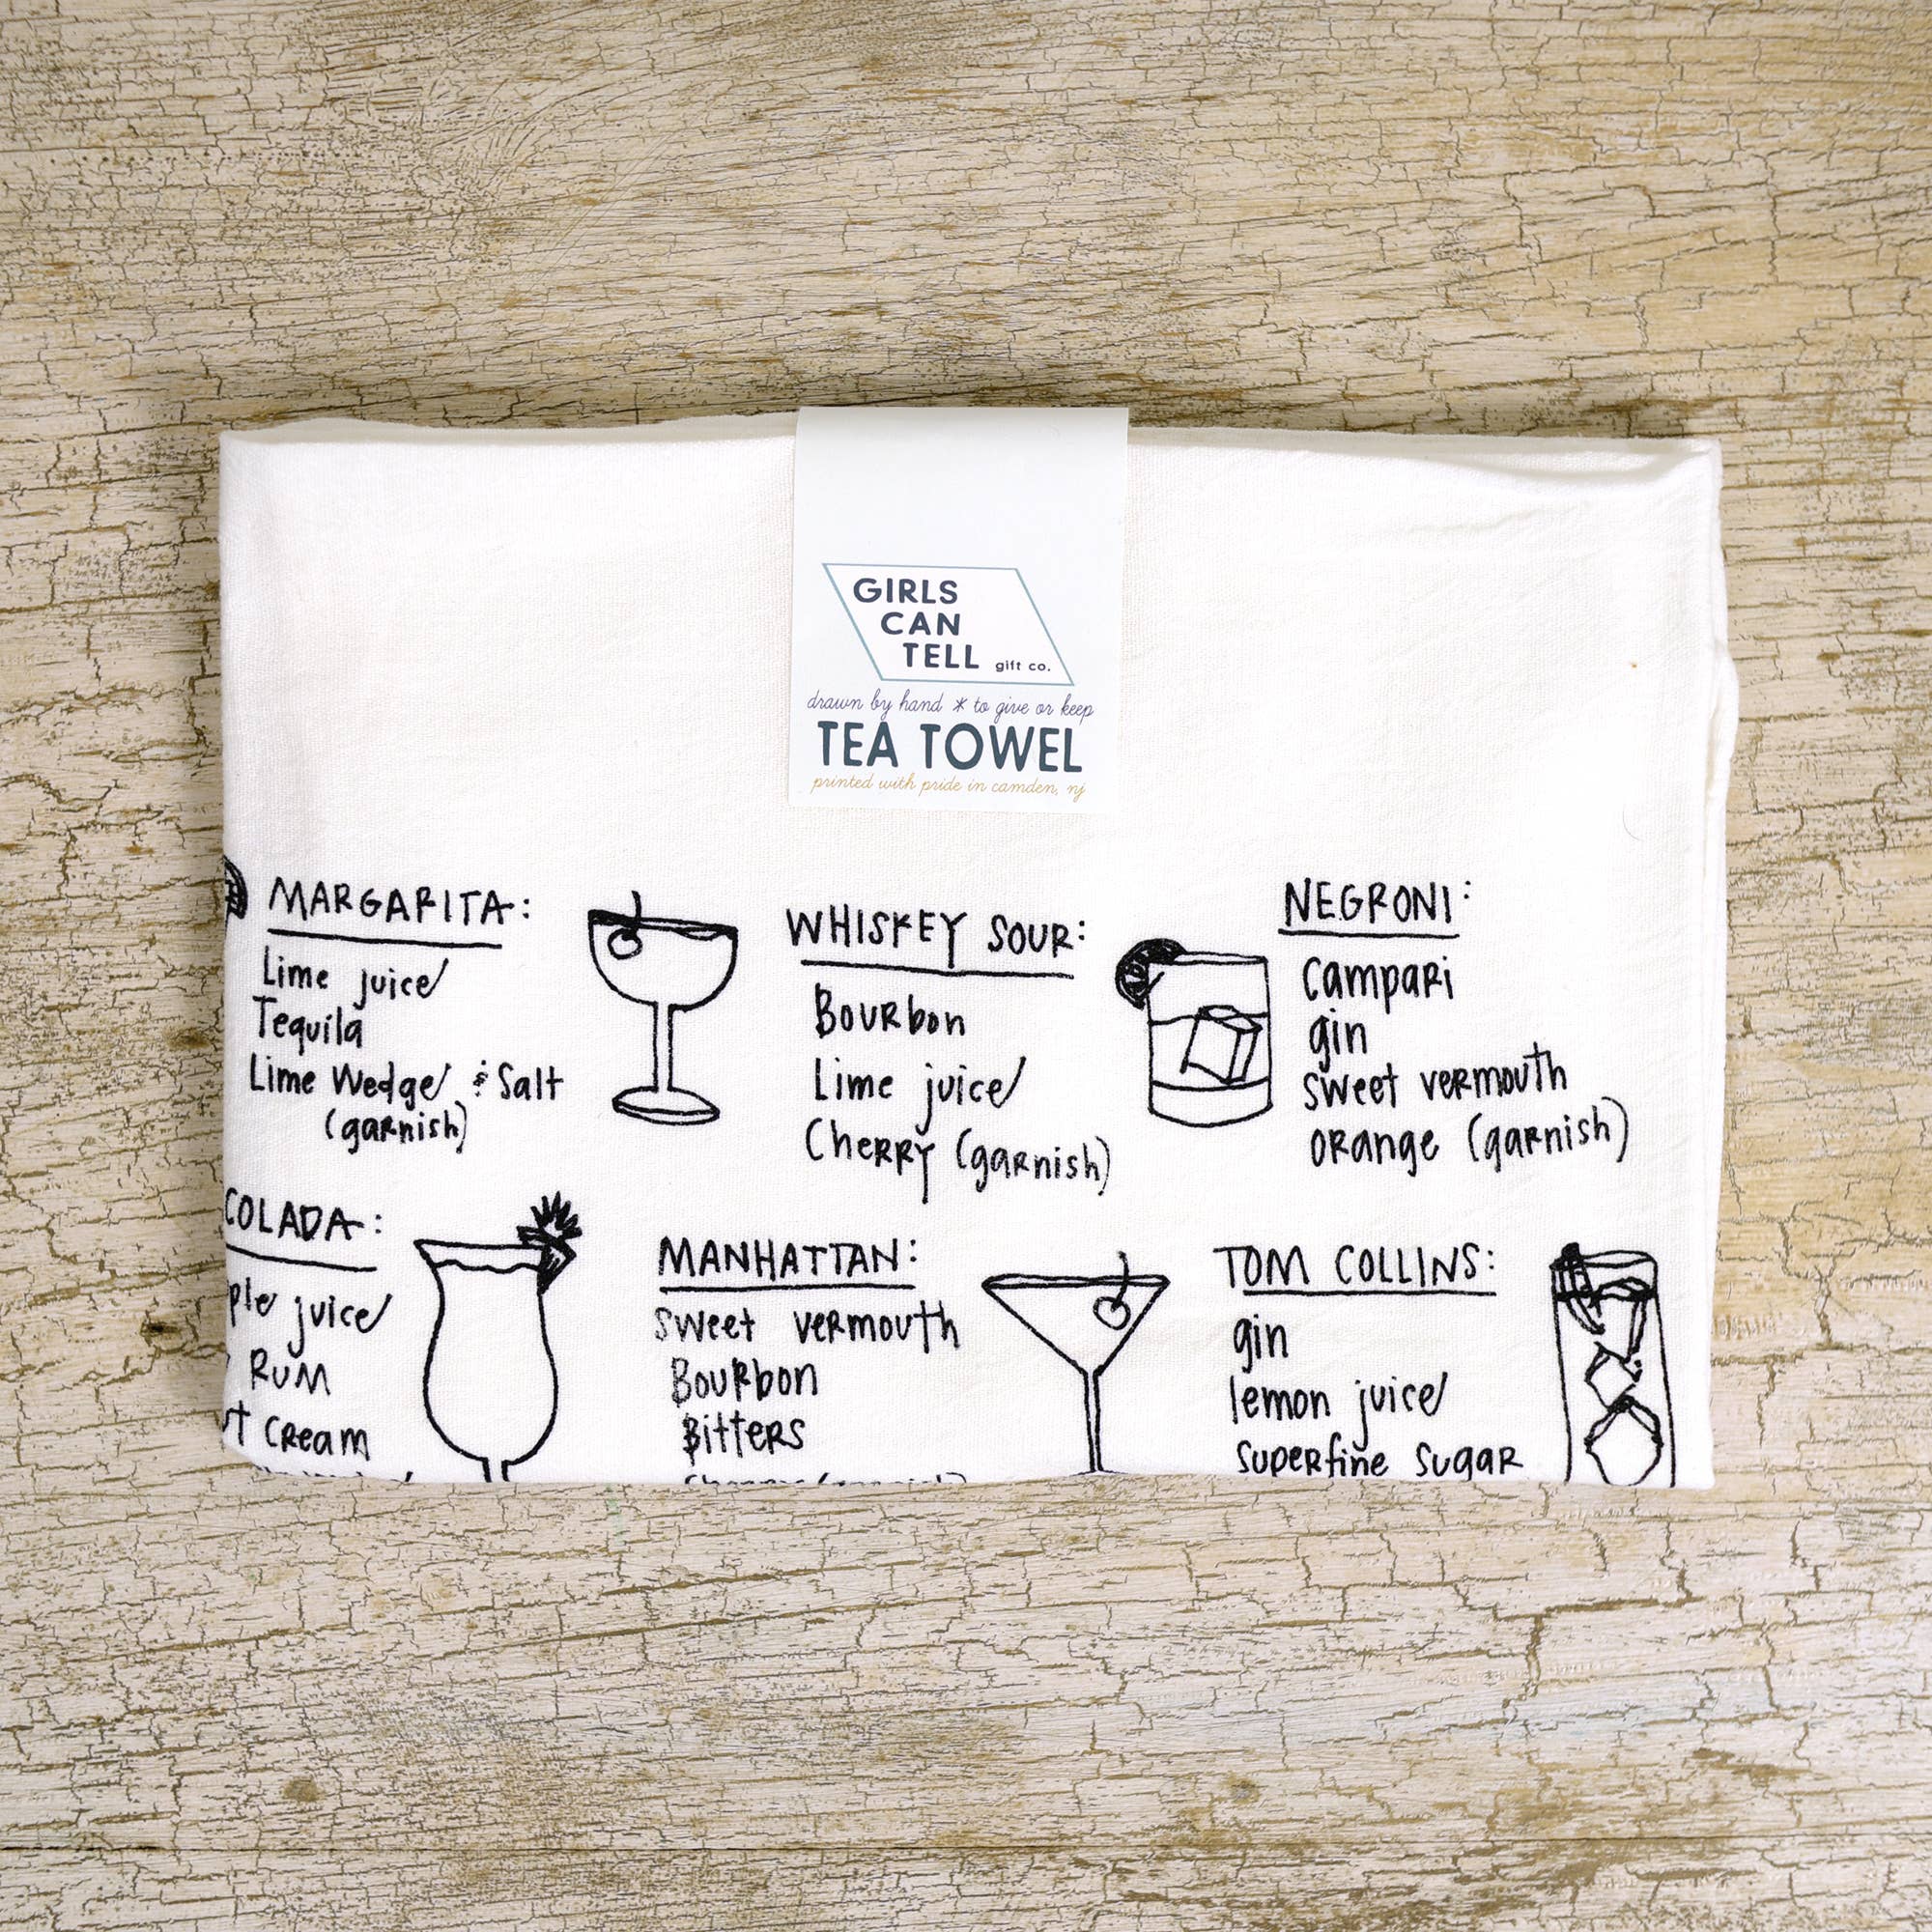 GIRLS
CAN
TELL gift co.
drawn by hand * to give or keep
TEA TOWEL
printed with pride in camden, nj
MARGARITA:
Lime juice
Tequila
Lime Wedge & Salt
(garnish)
WHISKEY SOUR:
Bourbon
Lime juice
Cherry (garnish)
NEGRONI:
Campari
gin
sweet vermouth
orange (garnish)
COLADA:
ple juice
Rum
t Cream
MANHATTAN:
sweet vermouth
Bourbon
Bitters
Cherry (garnish)
TOM COLLINS:
gin
lemon juice
superfine sugar